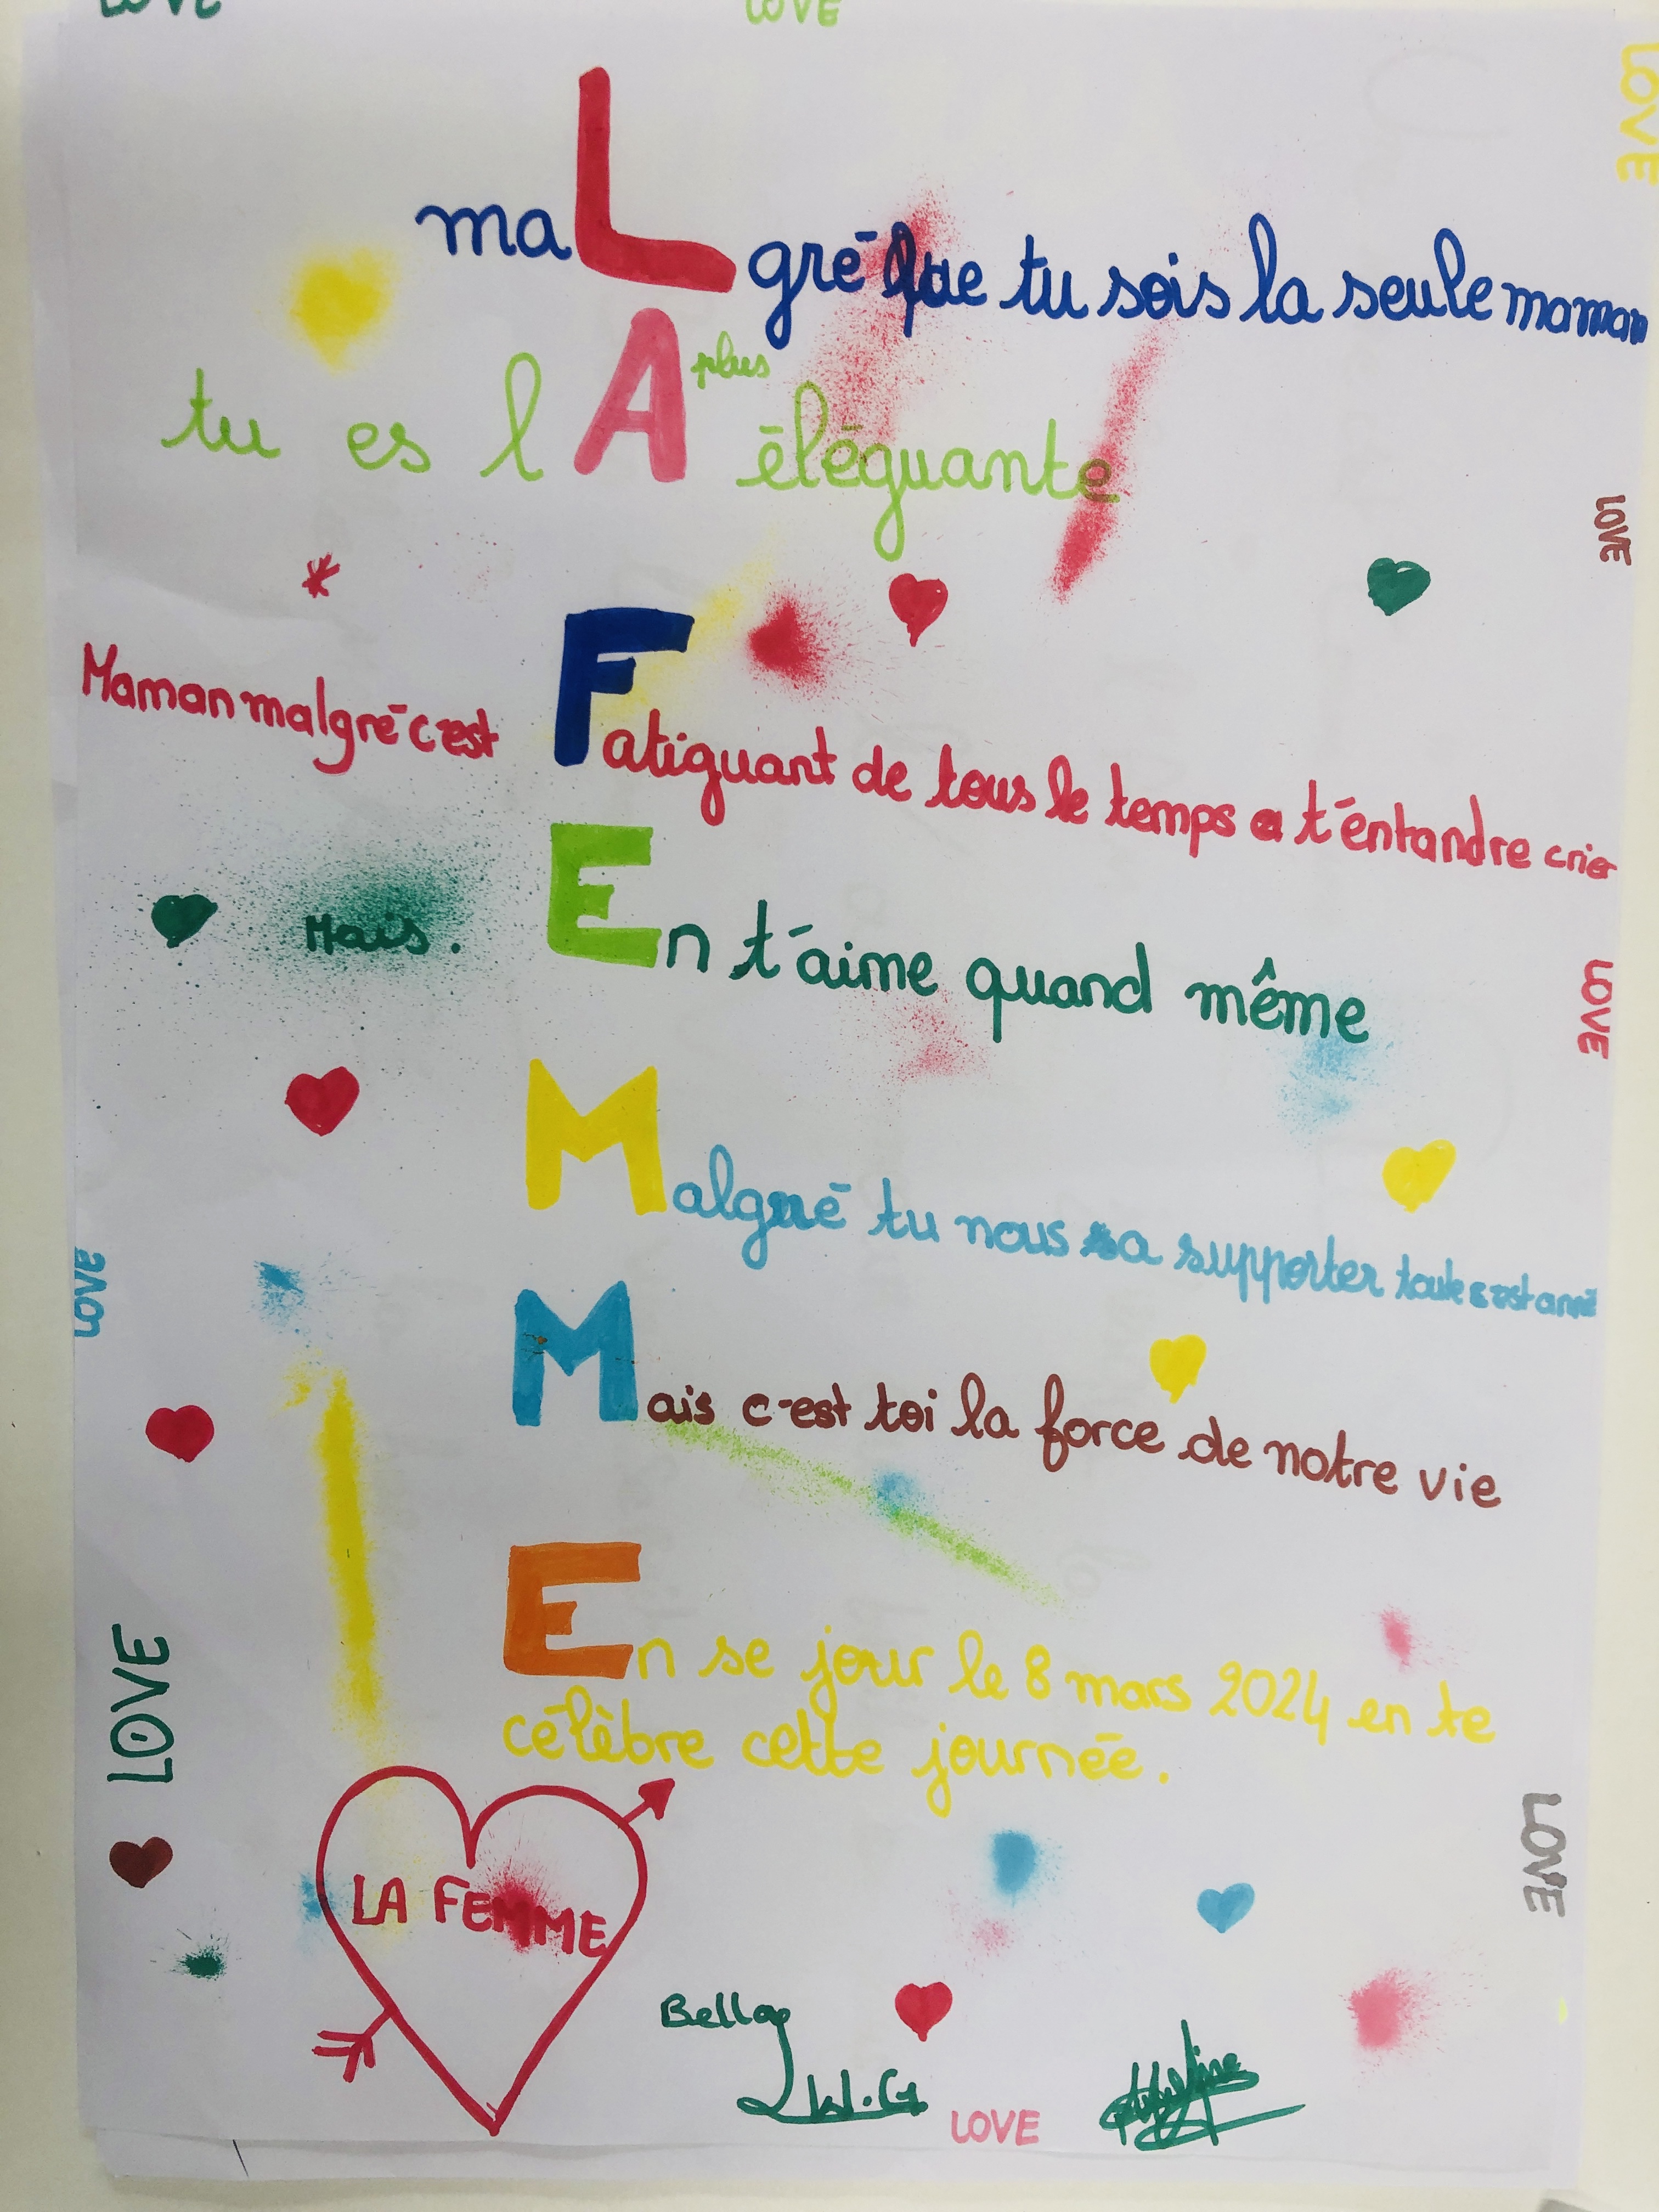 LOVE
LOVE
LOVE
maLgré que tu sois la seule maman
plus
tu es lA éléguante
LOVE
Maman malgré c'est Fatiguant de tous le temps a t'éntandre crier
Mais. En t'aime quand même
LOVE
Malgré tu nous a supporter toute
LOVE
Mais c'est toi la force de notre vie
En se jour le 8 mars 2024 en te
célèbre cette journée.
LOVE
LOVE
LA FEMME
Bella
W.G
LOVE